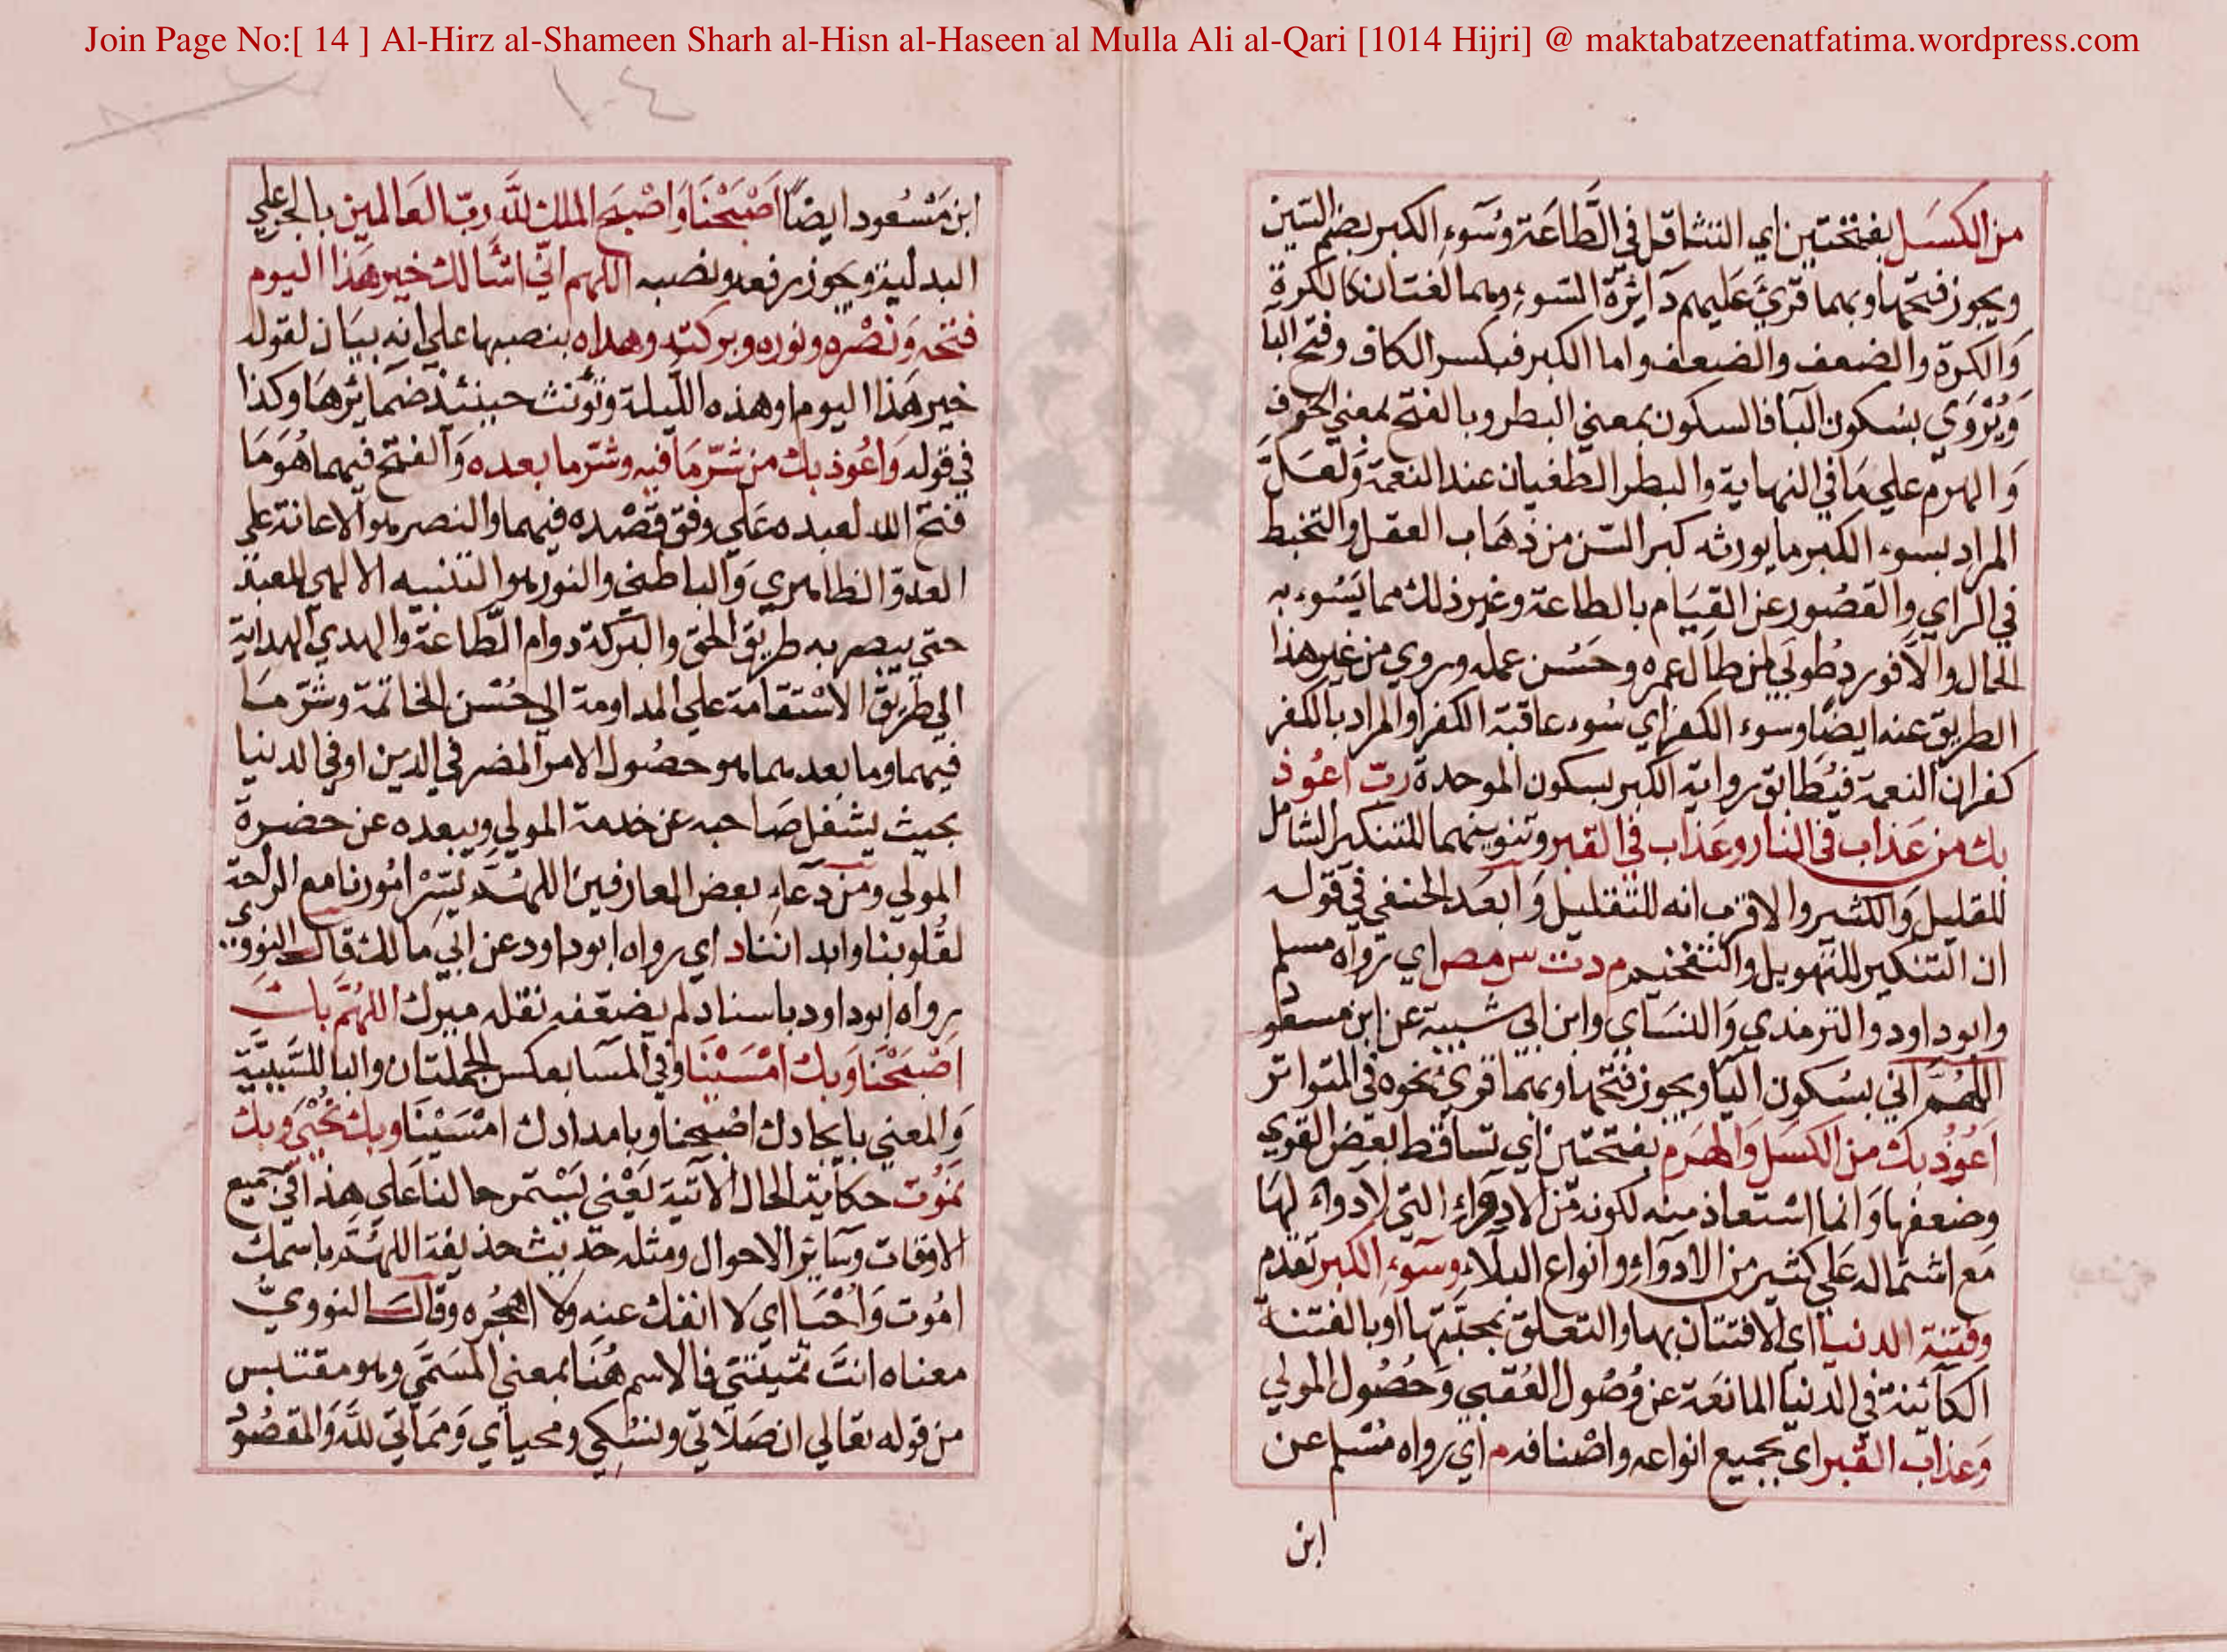 Join Page No:[ 14 ] Al-Hirz al-Shameen Sharh al-Hisn al-Haseen al Mulla Ali al-Qari [1014 Hijri] @ maktabatzeenatfatima.wordpress.com
١٠٤
من الكسَل بفتحتين اي التثاقل في الطَّاعَة وسُوءِ الكبر بضم السّين
ويجوز فتحها وبهما قرئ عَليهم دَايرَة السّوء وهما لغتان كالكره
وَالكرة والضعف والضعف واما الكبر فبكسر الكاف وفتح البا
وَيُرْوَي بسُكون البا فالسكون بمعني البطر وبالفتح بمعني الخوف
وَالهرم علي مَا في النهاية والبطر الطغيان عند النعمة وَلعَلّ
المراد بسوء الكبر ما يورثه كبر السّن من ذهَاب العقل والتخبط
في الراي والقصُور عن القيَام بالطاعة وغير ذلك مما يَسُوء به
الحال والا فورد طُوبي لمن طال عمره وحَسُن عمله وروي من غير هذا
الطريق عنه ايضًا وسوء الكفر اي سُوء عاقبة الكفر او المراد بالكفر
كفران النعمة فيُطابق رواية الكبر بسكون الموحدة ربّ اعُوذ
بك من عَذاب في النار وعَذاب في القبر وتنوينهما للتنكير الشامل
للقليل وَالكثير والاقرب انه للتقليل وَابعَد الحنفي في قوله
ان التنكير للتهويل والتفخيم م د ت س مص اي رَواه مسلم
وابو داود والترمذي وَالنسَاي وابن ابي شيبة عن ابن مسعود
اللهُمّ اني بسُكون اليَا ويجوز فتحها وبهما قرئ نحوه في المتواتر
اعُوذ بك من الكسَل وَالهرَم بفتحتين اي تساقط بعض القوي
وضعفها وَانما اسْتعاذ منه لكونه مّن الادواءِ التي لا دواء لهَا
مَع اشتماله عَلي كثير من الادوَاءِ وانواع البلَاءِ وسوءِ الكبر تقدم
وفتنة الدنيا اي الافتتان بها والتعلق بمحبّتها او بالفتنة
الكَائنة في الدنيَا المانعَة عن وُصُول العُقبي وَحُصُول المولي
وَعذاب القبر اي بجميع انواعه واصْنافه م اي رواه مُسْلم عن
ابن
ابن مَسْعُود ايضًا اصْبَحْنَا وَاصْبَحَ الملك للَّه ربّ العَالمين بالجر علي
البدلية ويجوز رفعه ونصبه اللهم اني اسْألك خير هَذا اليوم
فتحَه وَنصْره ونوره وبركته وهداه بنصبها علي انه بيَان لقوله
خير هَذا اليوم او هذه الليلة وتؤنث حينئذ ضمَائرهَا وكذا
في قوله وَاعُوذ بك من شرّ مَا فيه وشرّ ما بعده وَالفتح فيهما هُوَ مَا
فتح الله لعبده عَلي وفق قصْده فيهما والنصر هو الاعانة علي
العدوّ الظاهري وَالباطني والنور هو التنبيه الالهي للعبْد
حتي يبصر به طريق الحق والبَركة دوام الطّاعة والهدي الهداية
الي طريق الاسْتقامة علي المداومة الي حُسْن الخاتمة وشرّ مَا
فيهما وما بعدهما هو حصُول الامر المضر في الدين او في الدنيا
بحيث يشغل صَاحبه عن خدمة المولي ويبعده عن حضرة
المولي ومن دعَاء بعض العارفين اللهُمَّ يسّرْ امُورنا مع الراحة
لقلوبنا وابداننا د اي رواه ابو داود عن ابي مالك قال النووي
رواه ابو داود باسناد لم يضعّفه نقله ميرك اللهُمَّ بكَ
اصْبَحْنَا وَبك امْسَيْنَا وفي المسَا بعكس الجملتان والبا للسَّببيَّة
وَالمعني بايجادك اصْبحنا وبامدادك امْسَيْنَا وبك نحْيَي وَبك
نمُوْت حكاية الحال الاتية يَعْني يَسْتمر حالنا عَلي هذا في جميع
الاوقات وسَاير الاحوال ومثله حَديث حذيفة اللهُمَّ باسمك
امُوت وَاُحْيَا اي لا انفك عنه ولا اهجُره وقال النوويُّ
معناه انتَ تميتني فالاسم هُنَا بمعني المسَمَّي وهو مقتبس
من قوله تعالي ان صَلاتي ونسُكي ومحياي وَمَماتي للَّه وَالمقصُود